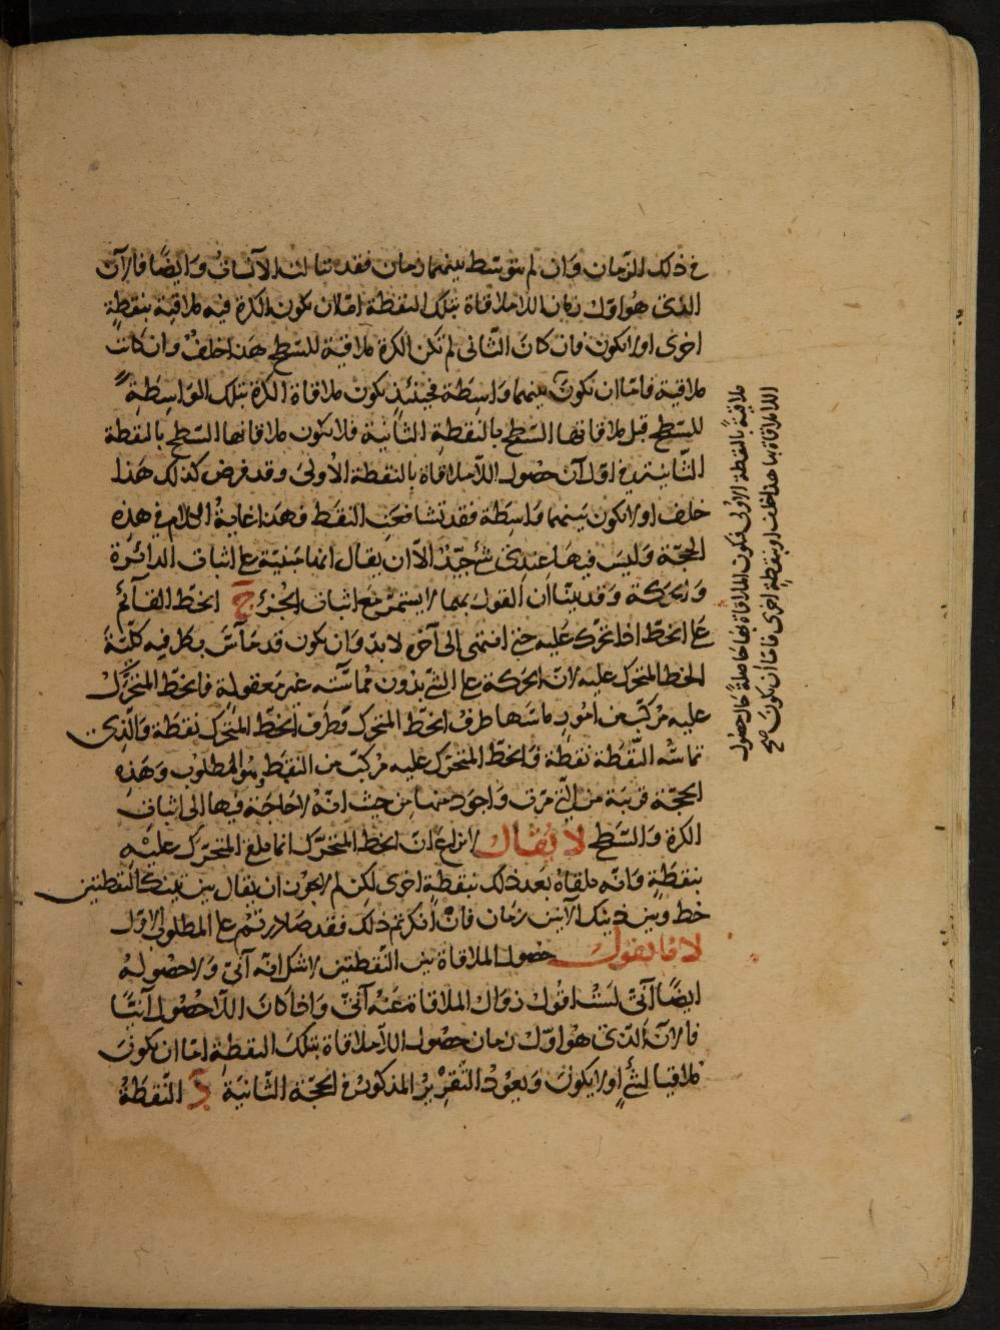 في ذلك الزمان وان لم يتوسط بينهما زمان فقد تتالت الآنات وايضا فالآن
الذى هو اول زمان اللاملاقاة بتلك النقطة اما ان تكون الكرة فيه ملاقية بنقطة
اخرى او لا يكون فان كان الثانى لم تكن الكرة ملاقية للسطح هذا خلف وان كانت
ملاقية فاما ان يكون بينهما واسطة فحينئذ يكون ملاقاة الكرة بتلك الواسطة
للسطح قبل ملاقاتها السطح بالنقطة الثانية فلا يكون ملاقاتها السطح بالنقطة
الثانية في اول آن حصول اللاملاقاة بالنقطة الاولى وقد فرض كذلك هذا
خلف او لا يكون بينهما واسطة فقد تشافعت النقط فهذا غاية الكلام في هذه
الحجة وليس فيها عندى شئ جيد الا ان يقال انها مبنية على اثبات الدائرة
والحركة وقد بينا ان القول بهما لا يستمر مع اثبات الجزء ج الخط القائم
على الخط اذا تحرك عليه حتى انتهى الى آخره لا بد وان يكون قد ماس بكل فيه كلية
الخط المتحرك عليه لان الحركة على الشئ بدون مماسته غير معقولة فالخط المتحرك
عليه مركب من امور ماسها طرف الخط المتحرك وطرف الخط المتحرك نقطة والذى
تماسه النقطة نقطة فالخط المتحرك عليه مركب من النقط وهو المطلوب وهذه
الحجة قريبة من التى مرت واجود منها من حيث انه لا حاجة فيها الى اثبات
الكرة والسطح لا يقال لا نزاع ان الخط المتحرك انما يلقى المتحرك عليه
بنقطة وانه يلقاه بعد ذلك بنقطة اخرى لكن لم لا يجوز ان يقال بين تينك النقطتين
خط وبين ذينك الآنين زمان فان انكرتم ذلك فقد صادرتم على المطلوب الاول
لانا نقول حصول الملاقاة بين النقطتين لا شك انه آنى ولا حصوله
ايضا آنى لست اقول زوال الملاقاة عنه آنى واذا كان اللاحصول آنيا
فالآن الذى هو اول زمان حصول اللاملاقاة بتلك النقطة اما ان يكون
ملاقيا لشئ او لا يكون ويعود التقرير المذكور في الحجة الثانية د النقطة
ملاقية بالنقطة الاولى فتكون الملاقاة بها حاصلة حال حصول
اللاملاقاة بها هذا خلف او بنقطة اخرى فاما ان يكون صح